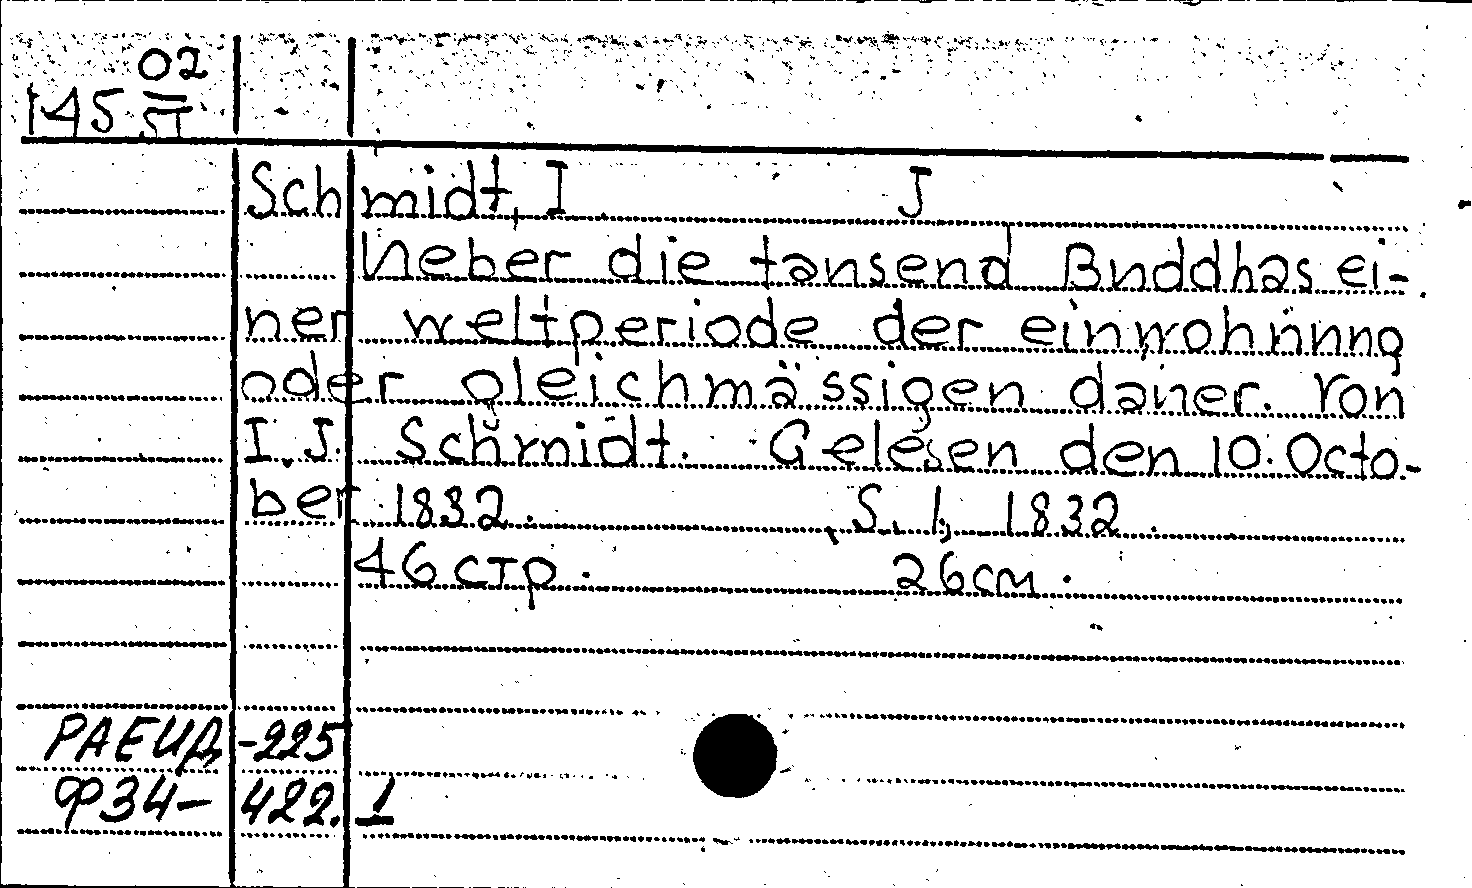 02
145
Schmidt, I J
Ueber die tansend Buddhas ei-
ner weltperiode der einwohnung
oder gleichmässigen dauer. Von
I. J. Schmidt. Gelesen den 10. Octo-
ber 1832. S. l, 1832.
46 стр. 26 см.
РАЕИД-225
Ф34-422.1